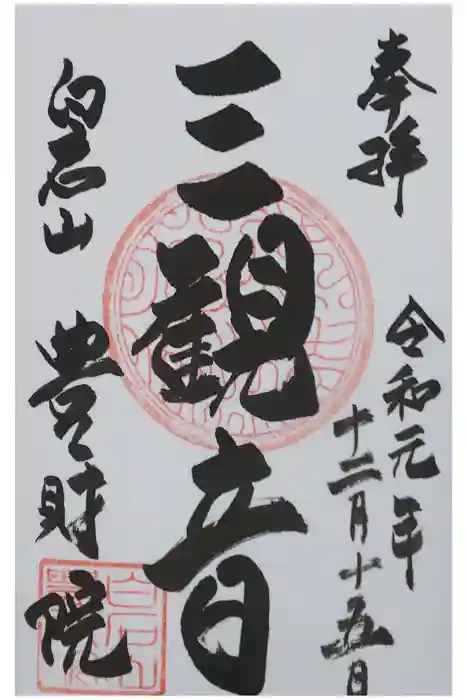 奉拝
令和元年
十二月十五日
三観音
白石山
豊財院